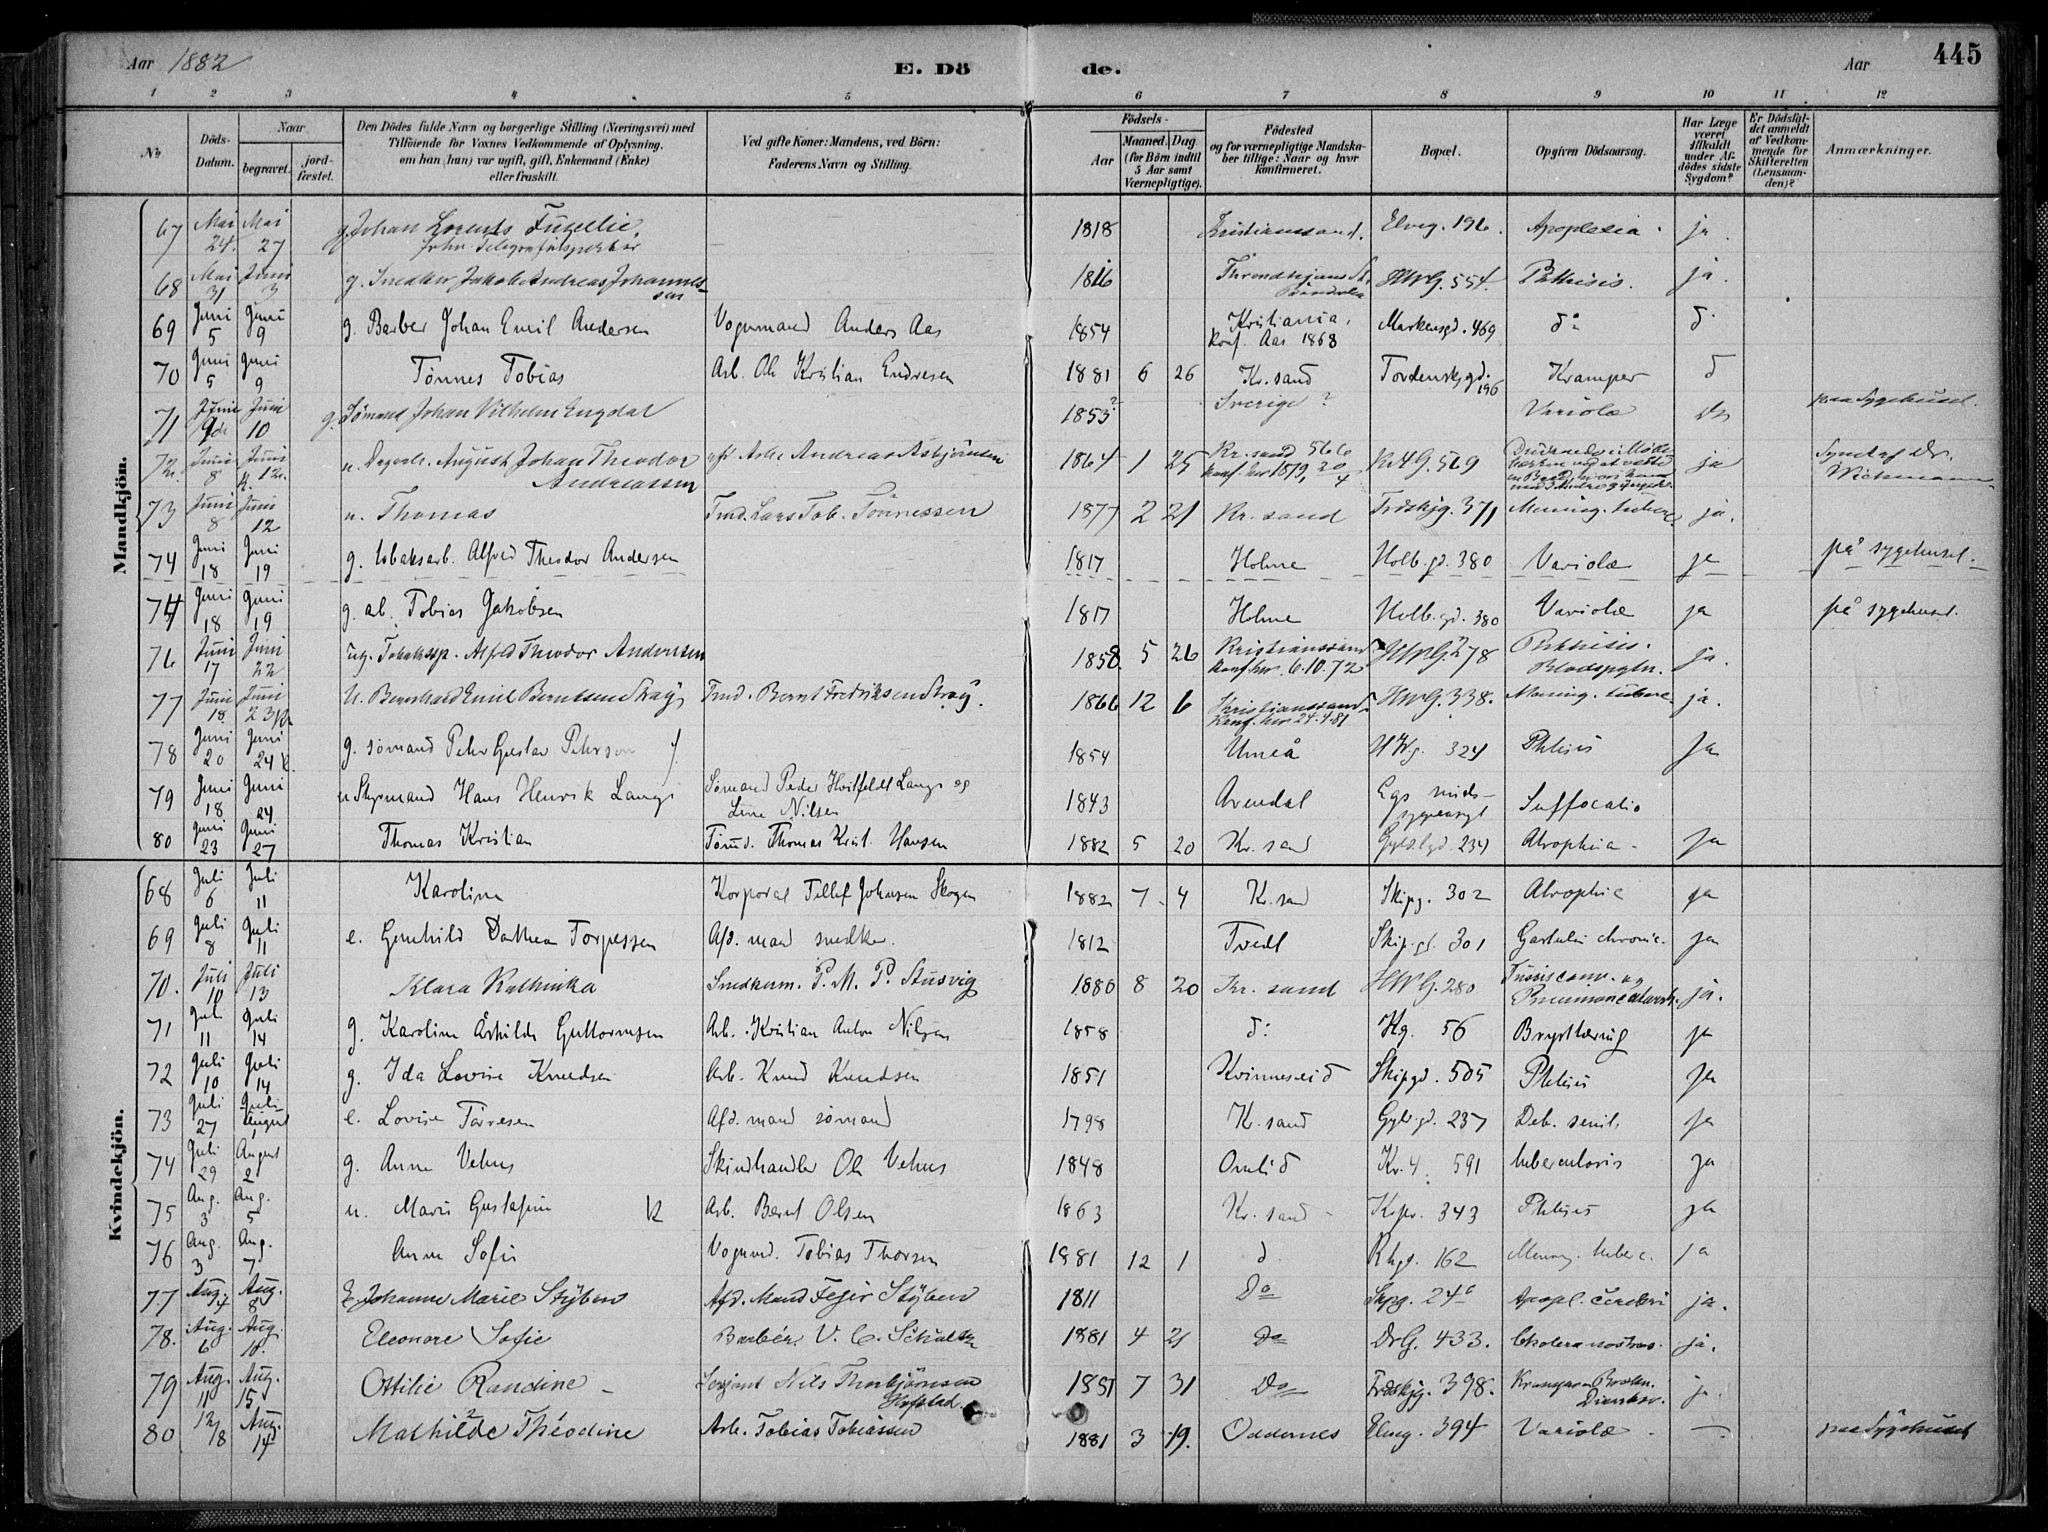 Aar 1882 E. Dö de. Aar 445
1 2 3 4 5 6 7 8 9 10 11 12
No Döds-Datum. Naar begravet. jord-fæstet. Den Dödes fulde Navn og borgerlige Stilling (Næringsvei) med Tilföiende for Voxnes Vedkommende af Oplysning, om han (hun) var ugift, gift, Enkemand (Enke) eller fraskilt. Ved gifte Koner: Mandens, ved Börn: Faderens Navn og Stilling. Födsels- Aar Maaned. Dag (for Börn indtil 5 Aar samt Værnepligtige). Födested og for værnepligtige Mandskaber tillige: Naar og hvor konfirmeret. Bopæl. Opgiven Dödsaarsag. Har Læge været tilkaldt under Afdödes sidste Sygdom? Er Dödsfaldet anmeldt af Vedkommende for Skifteretten (Lensmanden)? Anmærkninger.
Mandkjön.
67 Mai 24. Mai 27 g. Johan Lorents 1818 Kristianssand. Elveg. 196. Apoplexia. ja.
68 Mai 31 Juni 3 g. Snedker Jakob Andreas Johannessen 1816 HWG. 554. Phthisis. ja.
69 Juni 5 Juni 9 g. Barber Johan Emil Andersen Vognmand Anders Aas 1854 Kristiania, konf. Aas 1868 Markensgd. 469 do d.
70 Juni 5 Juni 9 Tönnes Tobias Arb. Ole Kristian Endresen 1881 6 26 Kr.sand Tordenskj.gd. 196 Kramper d
71 Juni 10 g. Sömand Johan Vilhelm Engdal 1853? Sverige? Variolæ paa Sygehuset.
72. Juni 8 Juni 12. u. August Johan Theodor Andreassen Arb. Andreas Asbjörnsen 1864 1 25 Kr.sand 566 konf. her 1879, 20/4 Kr4G. 569 ja
73 Juni 8 Juni 12 u. Thomas Tmd. Lars Tob. Tönnessen 1877 2 21 Kr. sand Frdskjg. 371 Mening. tuberc ja.
74 Juni 18 Juni 19 g. tobaksarb. Alfred Theodor Andersen 1817 Holme Holb.gd. 380 Variolæ ja på sygehuset.
74 Juni 18 Juni 19 g. ab. Tobias Jakobsen 1817 Holme Holb.gd. 380 Variolæ ja på sygehuset.
76 Juni 17 Juni 22 ug. Tobakssp. Alfred Theodor Andersen 1858. 5 26 Kristianssand konf. her 6.10.72 HWG. 278 Phthisis. Blodspytn. ja.
77 Juni 18. Juni 23 U. Bernhard Emil Berntsen Tmd. Bernt Fredriksen 1866 12 6 Kristianssand. Konf. her 24.4.81 HWG. 338. Mening. tuberc. ja.
78 Juni 20 Juni 24 g. sömand Pehr Gustav Pehrson 1854 Umeå 324 Phtisis Ja
79 Juni 18 Juni 24 u Skipsmand Hans Henrik Lange Sömand Peder Hvitfeldt Lange og Line Nilsen 1843 Arendal Egs sindssygeasyl Suffocatio
80 Juni 23 Juni 27 Thomas Kristian Tömd. Thomas Krist. Hansen 1882 5 20 Kr. sand Gyldl.gd. 234 Atrophia Ja
Kvindekjön.
68 Juli 6 Juli 11 Karoline Korporal Tellef Johnsen Skogen 1882 7 4 Kr. sand Skipg. 302 Atrophia ja
69 Juli 8 Juli 11 e. Gunhild Dathea Torgessen Afd. mand snedker. 1812 Tvedt Skip.gd. 301 chronic. ja
70. Juli 10 Juli 13 Klara Kathinka Snedkerm. P. M. P. Stusvig 1880 8 20 Kr. sand HWG. 280 Tussis conv. og Pneumonia catarrh. ja.
71 Juli 11 Juli 14 g. Karoline Åshilde Guttormsen Arb. Kristian Anton Nilsen 1858 d: Kg. 56 Brysttæring ja
72 Juli 10 Juli 14 g. Ida Lovise Knudsen Arb. Knud Knudsen 1851 Kvinneseid Skipgd. 505 Phtisis Ja
73 Juli 27 August 1 e. Lovise Törresen Afd. mand sömand 1798 K. sand Gyld.gd. 237 Deb. senil. ja
74 Juli 29 August 2 g. Anne Vehus Skindhandler Ole Vehus 1848 Omlid Kr. 4. 591 tuberculosis ja
75 Aug. 3 Aug. 5 u. Marie Gustafine k Arb. Bernt Olsen 1863 Kr. sand 343 Phtisis ja
76 Aug. 3 Aug. 7 Anne Sofie Vognmd. Tobias Thorsen 1881 12 1 d. Rhgd. 162 Mening. tuberc. ja
77 Aug. 4 Aug. 8 E Johanne Marie Stÿben Afd. Mand Fejer Stÿben 1811 Do Skpg. 24 Apopl. cerebri ja.
78. Aug. 6 Aug. 10. Eleonore Sofie Barbér V. C. Schultz 1881 4 21 Do DrG. 433. Cholera nostras. ja.
79 Aug. 11 Aug. 15 Ottilie Randine Serjant Nils Thorbjörnsen Hofstad 1881 7 31 Do Frdskjg. 398. ja.
80 12/8 Aug. 14 Mathilde Théodine Arb. Tobias Tobiassen 1881 3 19. Oddernes Elveg. 394 Variolæ — paa Sygehuset